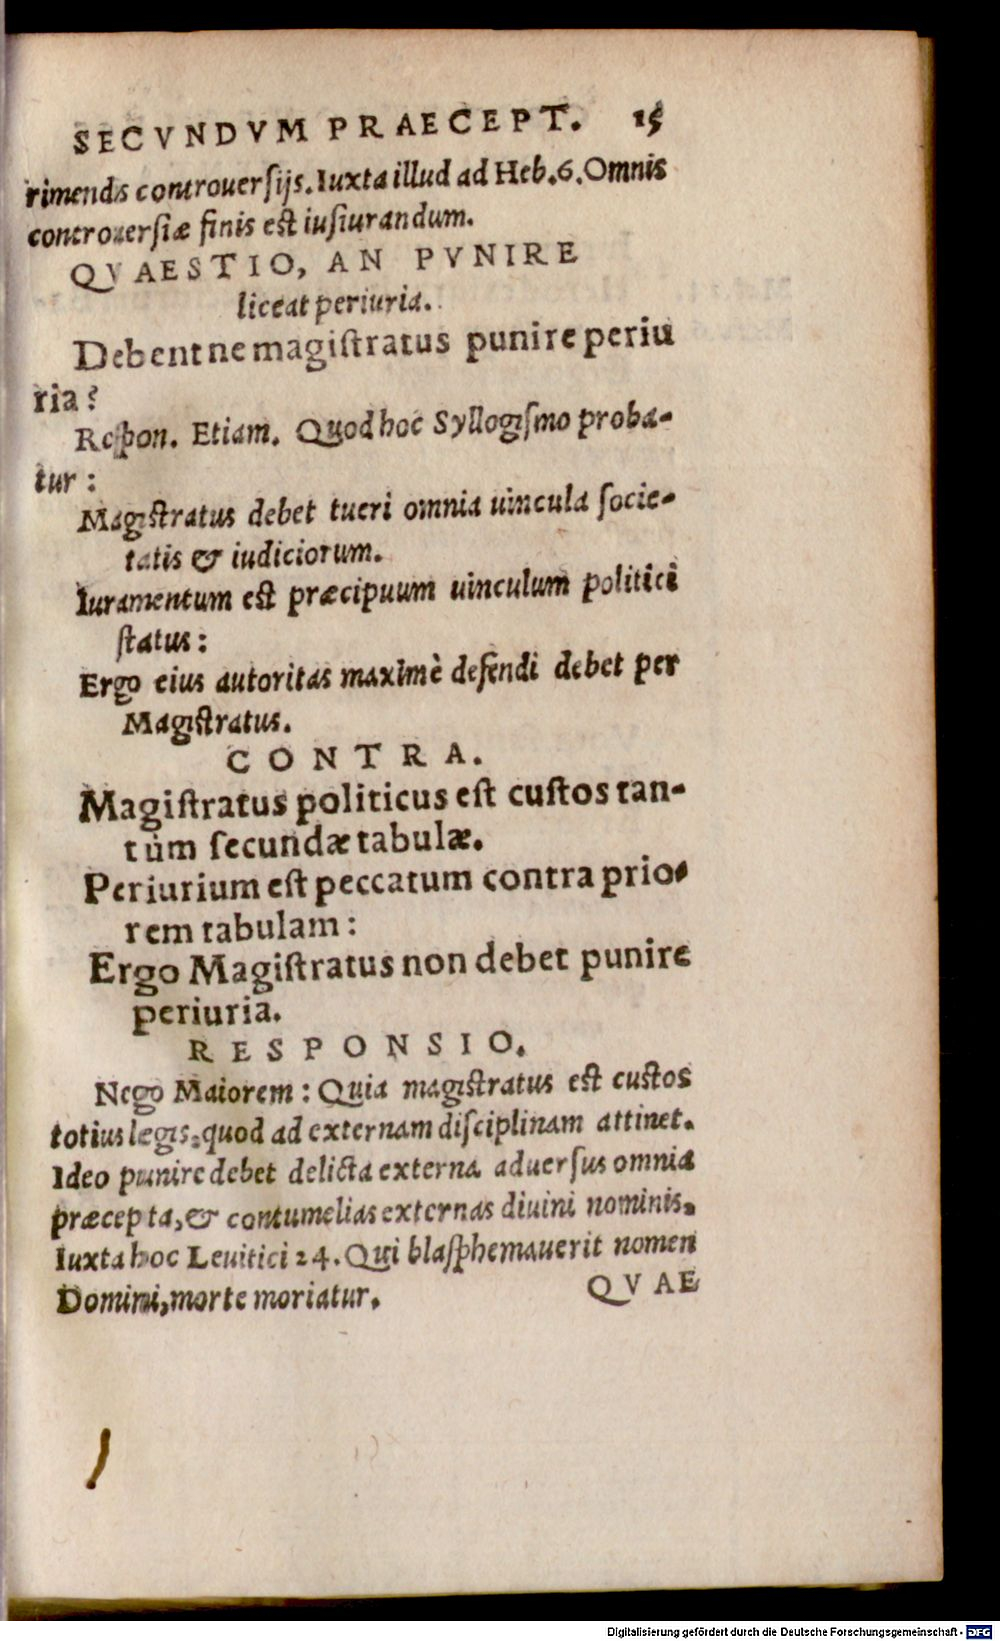 SECVNDVM PRAECEPT. 15
rimendis controuersijs. Iuxta illud ad Heb. 6. Omnis
controuersiæ finis est iusiurandum.
QVAESTIO, AN PVNIRE
liceat periuria.
Debent ne magistratus punire periu
ria?
Respon. Etiam. Quod hoc Syllogismo proba-
tur:
Magistratus debet tueri omnia uincula socie-
tatis & iudiciorum.
Iuramentum est præcipuum uinculum politici
status:
Ergo eius autoritas maximè defendi debet per
Magistratus.
CONTRA.
Magistratus politicus est custos tan-
tùm secundæ tabulæ.
Periurium est peccatum contra prio-
rem tabulam:
Ergo Magistratus non debet punire
periuria.
RESPONSIO.
Nego Maiorem: Quia magistratus est custos
totius legis, quod ad externam disciplinam attinet.
Ideo punire debet delicta externa aduersus omnia
præcepta, & contumelias externas diuini nominis.
Iuxta hoc Leuitici 24. Qui blasphemauerit nomen
Domini, morte moriatur.
QVAE
Digitalisierung gefördert durch die Deutsche Forschungsgemeinschaft - DFG